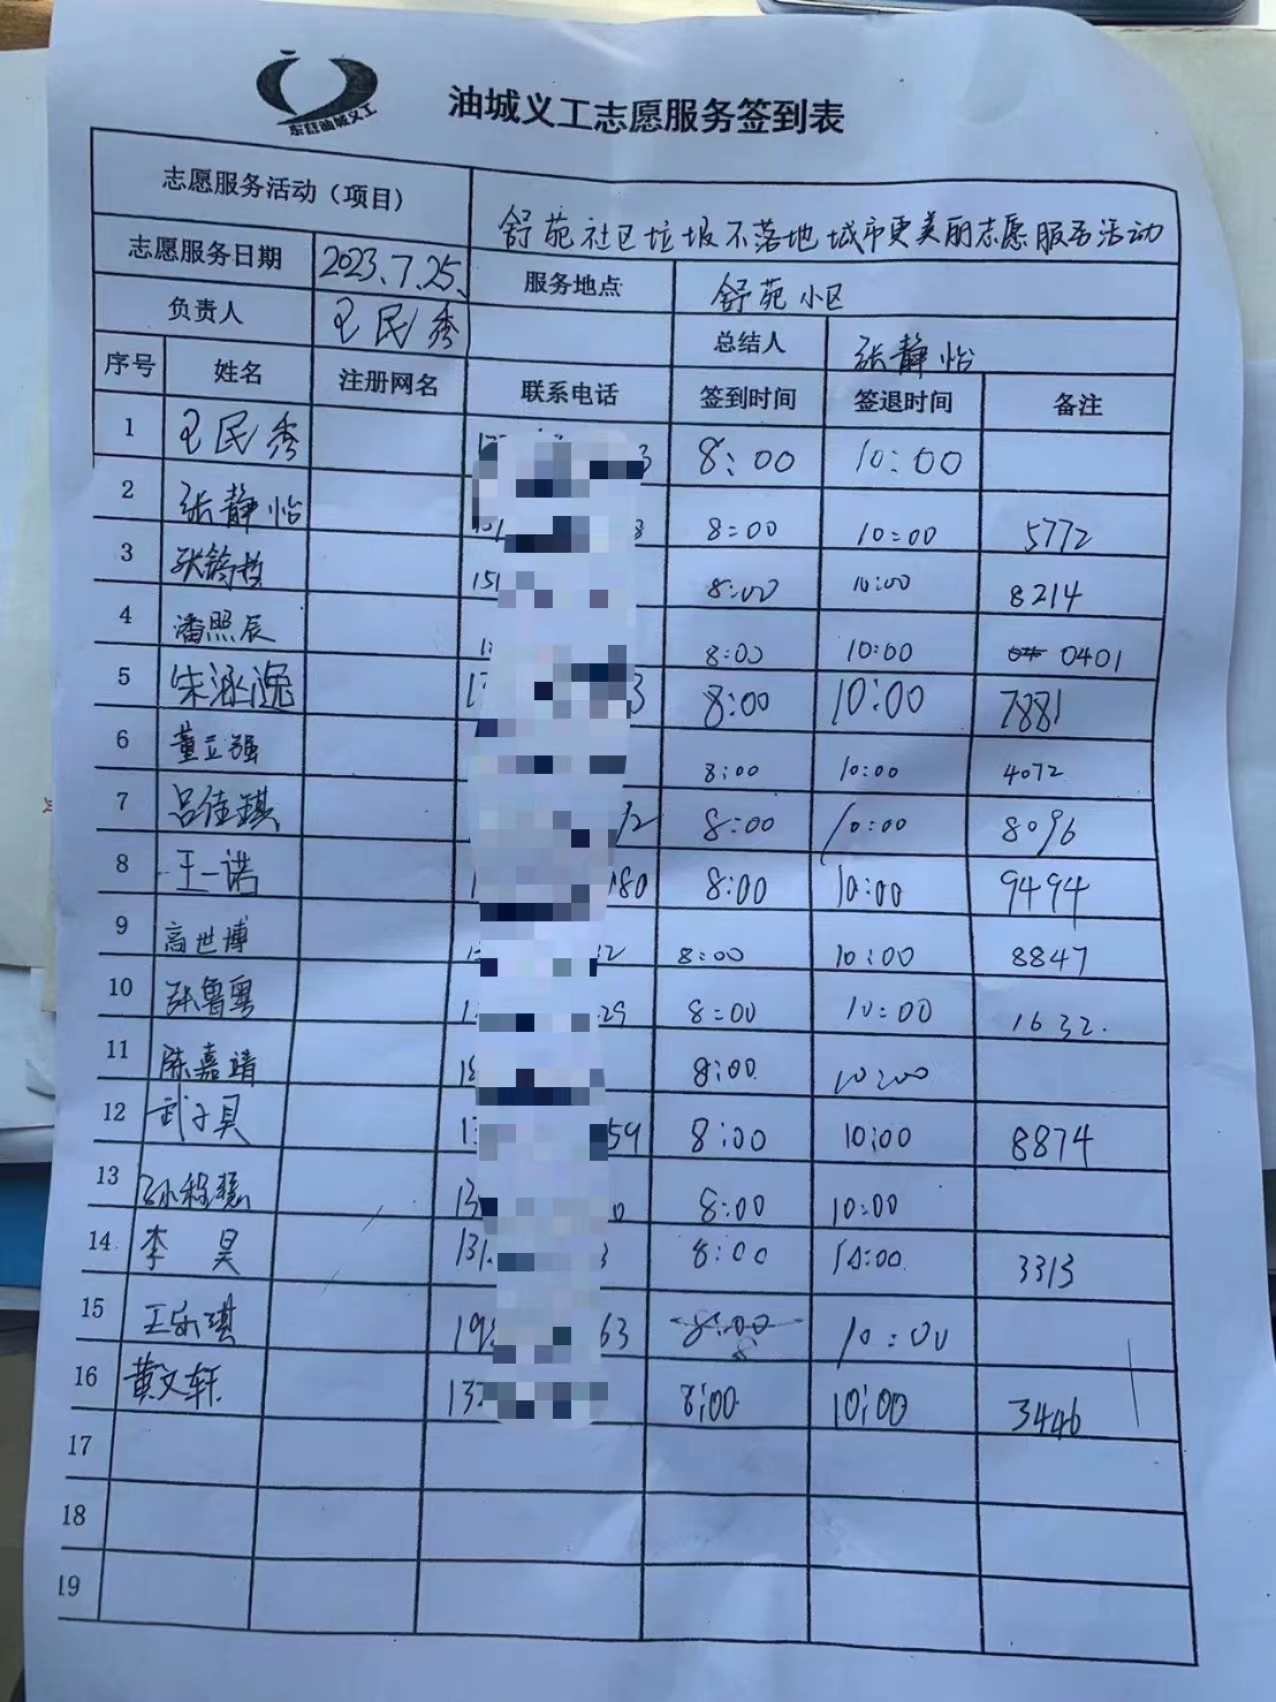 东营油城义工
油城义工志愿服务签到表
志愿服务活动（项目） 舒苑社区垃圾不落地城市更美丽志愿服务活动
志愿服务日期 2023.7.25. 服务地点 舒苑小区
负责人 王民秀 总结人 张静怡
序号 姓名 注册网名 联系电话 签到时间 签退时间 备注
1 王民秀 8:00 10:00
2 张静怡 8:00 10:00 5772
3 8:00 10:00 8214
4 潘照辰 8:00 10:00 0401
5 朱泳逸 8:00 10:00 7881
6 董立强 8:00 10:00 4072
7 吕佳琪 8:00 10:00 8096
8 王一诺 180 8:00 10:00 9494
9 高世博 8:00 10:00 8847
10 张鲁粤 29 8:00 10:00 1632.
11 陈嘉靖 8:00 10:00
12 武子贝 59 8:00 10:00 8874
13 8:00 10:00
14 李昊 131 8:00 10:00 3313
15 王乐琪 63 8:00 10:00
16 黄文轩 8:00 10:00 3446
17
18
19